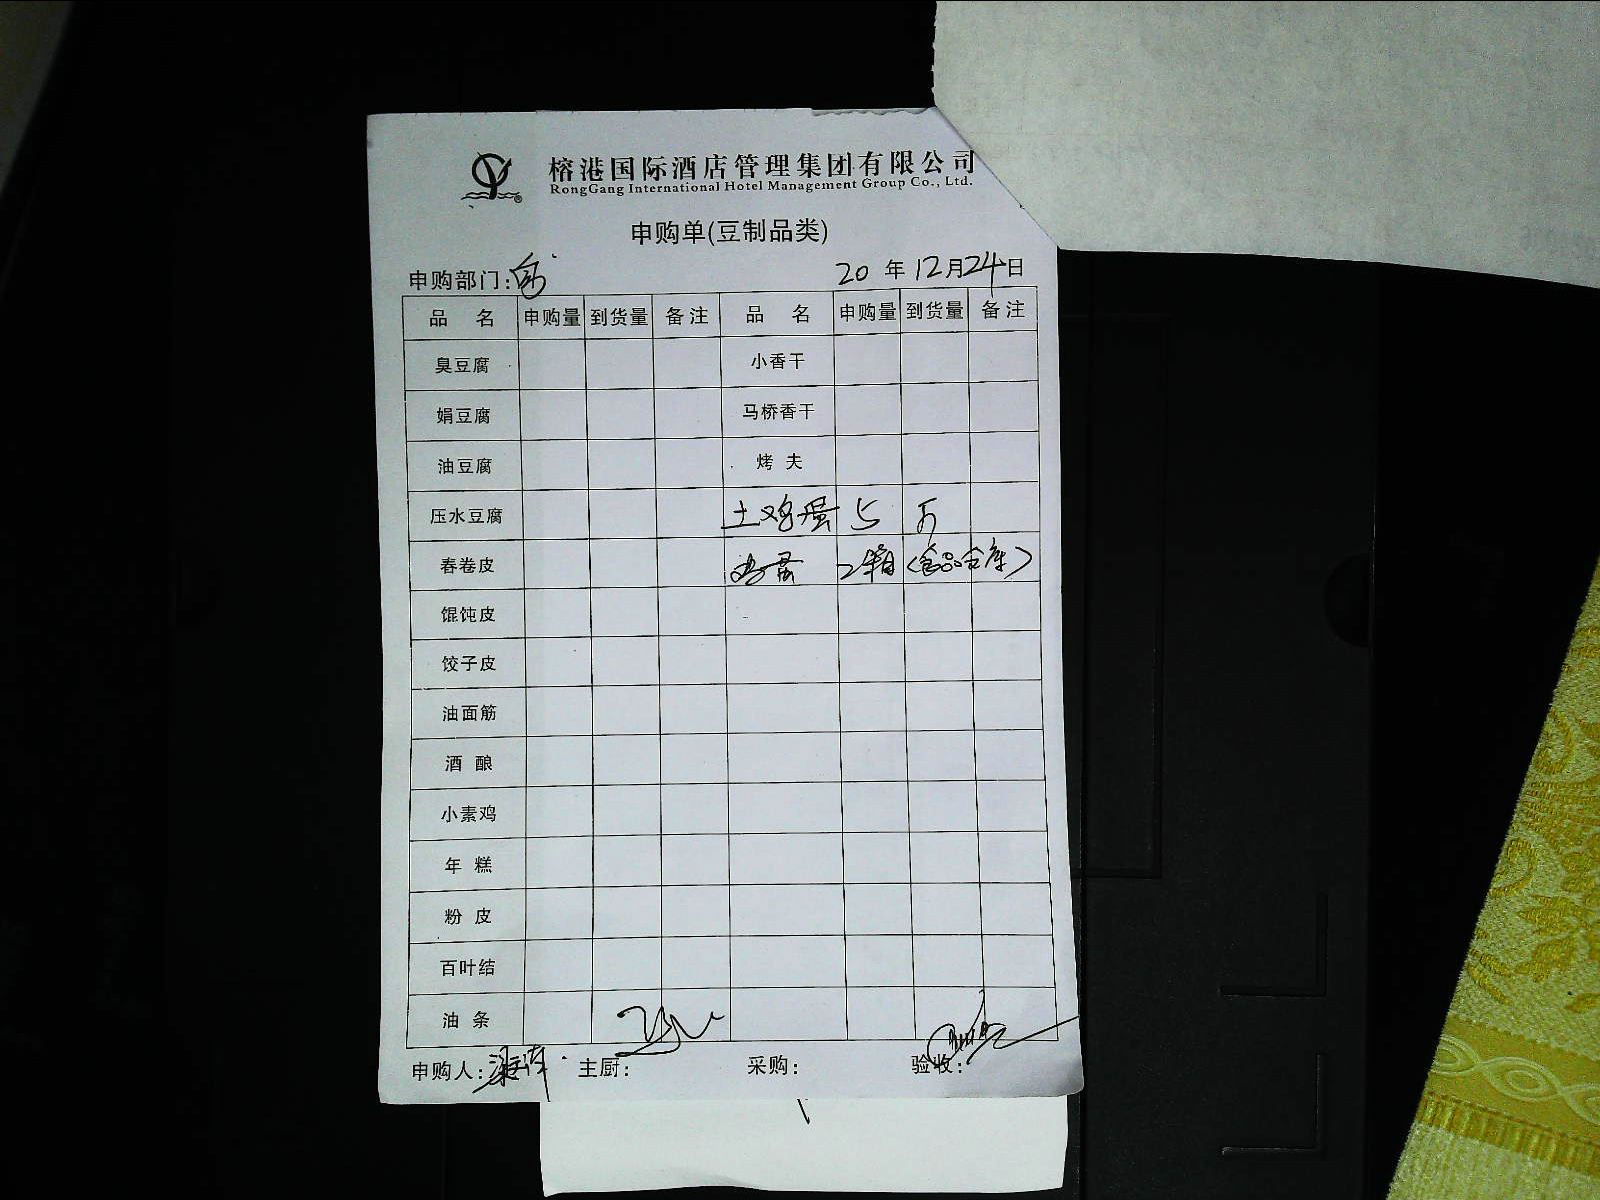 榕港国际酒店管理集团有限公司
RongGang International Hotel Management Group Co., Ltd.
申购单(豆制品类)
申购部门: 20 年 12 月 24 日
品 名 申购量 到货量 备注 品 名 申购量 到货量 备注
臭豆腐 小香干
娟豆腐 马桥香干
油豆腐 烤 夫
压水豆腐 土鸡蛋 5
春卷皮 鸡蛋 2箱 (食品仓库)
馄饨皮
饺子皮
油面筋
酒 酿
小素鸡
年 糕
粉 皮
百叶结
油 条
申购人: 主厨: 采购: 验收: